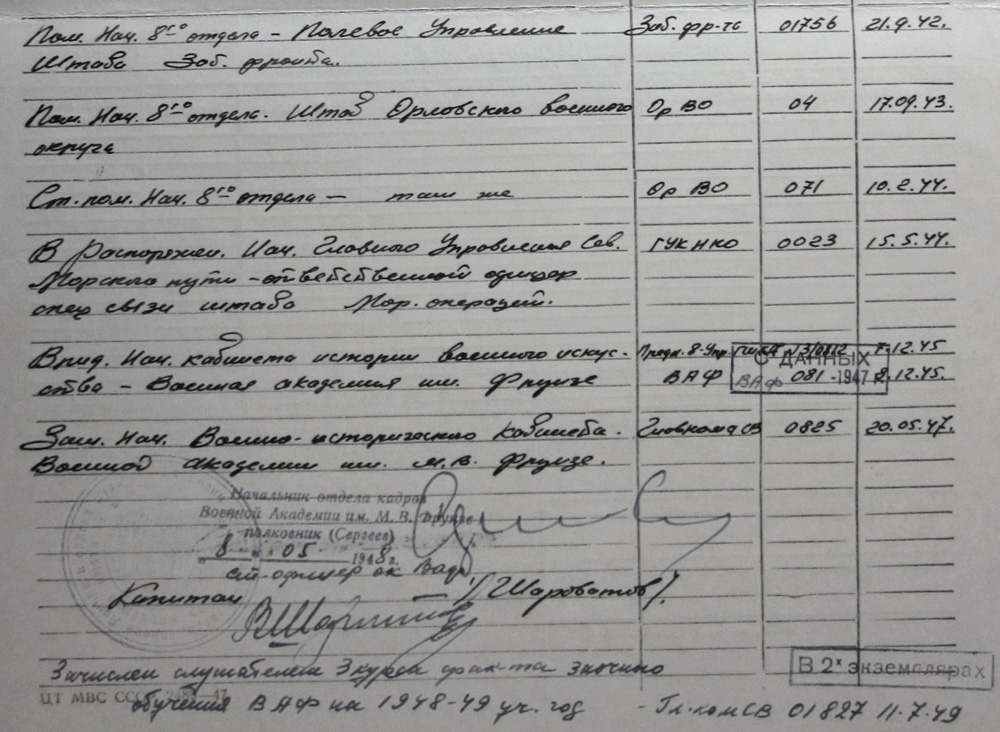 Пом. Нач. 8го отдела – Полевое Управление Заб. фр-та 01756 21.9.42.
Штаба Заб. фронта.
Пом. Нач. 8го отдела. Штаб Орловского военного Ор ВО 04 17.09.43.
округа
Ст. пом. Нач. 8го отдела – там же Ор ВО 071 10.2.44.
В Распоряжен. Нач. Главного Управления Сев. ГУК НКО 0023 15.5.44.
Морского пути – ответственной офицер
спец связи штаба Мор. операций.
Врид. Нач. кабинета истории военного искус- 7.12.45
ства – Военная академия им. Фрунзе ВАФ 081 8.12.45.
О ДАННЫХ
ВАФ -1947
Зам. Нач. Военно-исторического кабинета. Главкома СВ 0825 20.05.47.
Военной академии им. М.В. Фрунзе.
Начальник отдела кадров
Военной Академии им. М. В. Фрунзе
полковник (Сергеев)
8 " 05 1948 г.
ст. офицер ок ВАФ
Капитан /Шароватов/.
Зачислен слушателем 3 курса фак-та заочно
В 2х экземплярах
ЦТ МВС СССР
обучения ВАФ на 1948-49 уч. год - Гл.ком СВ 01827 11.7.49